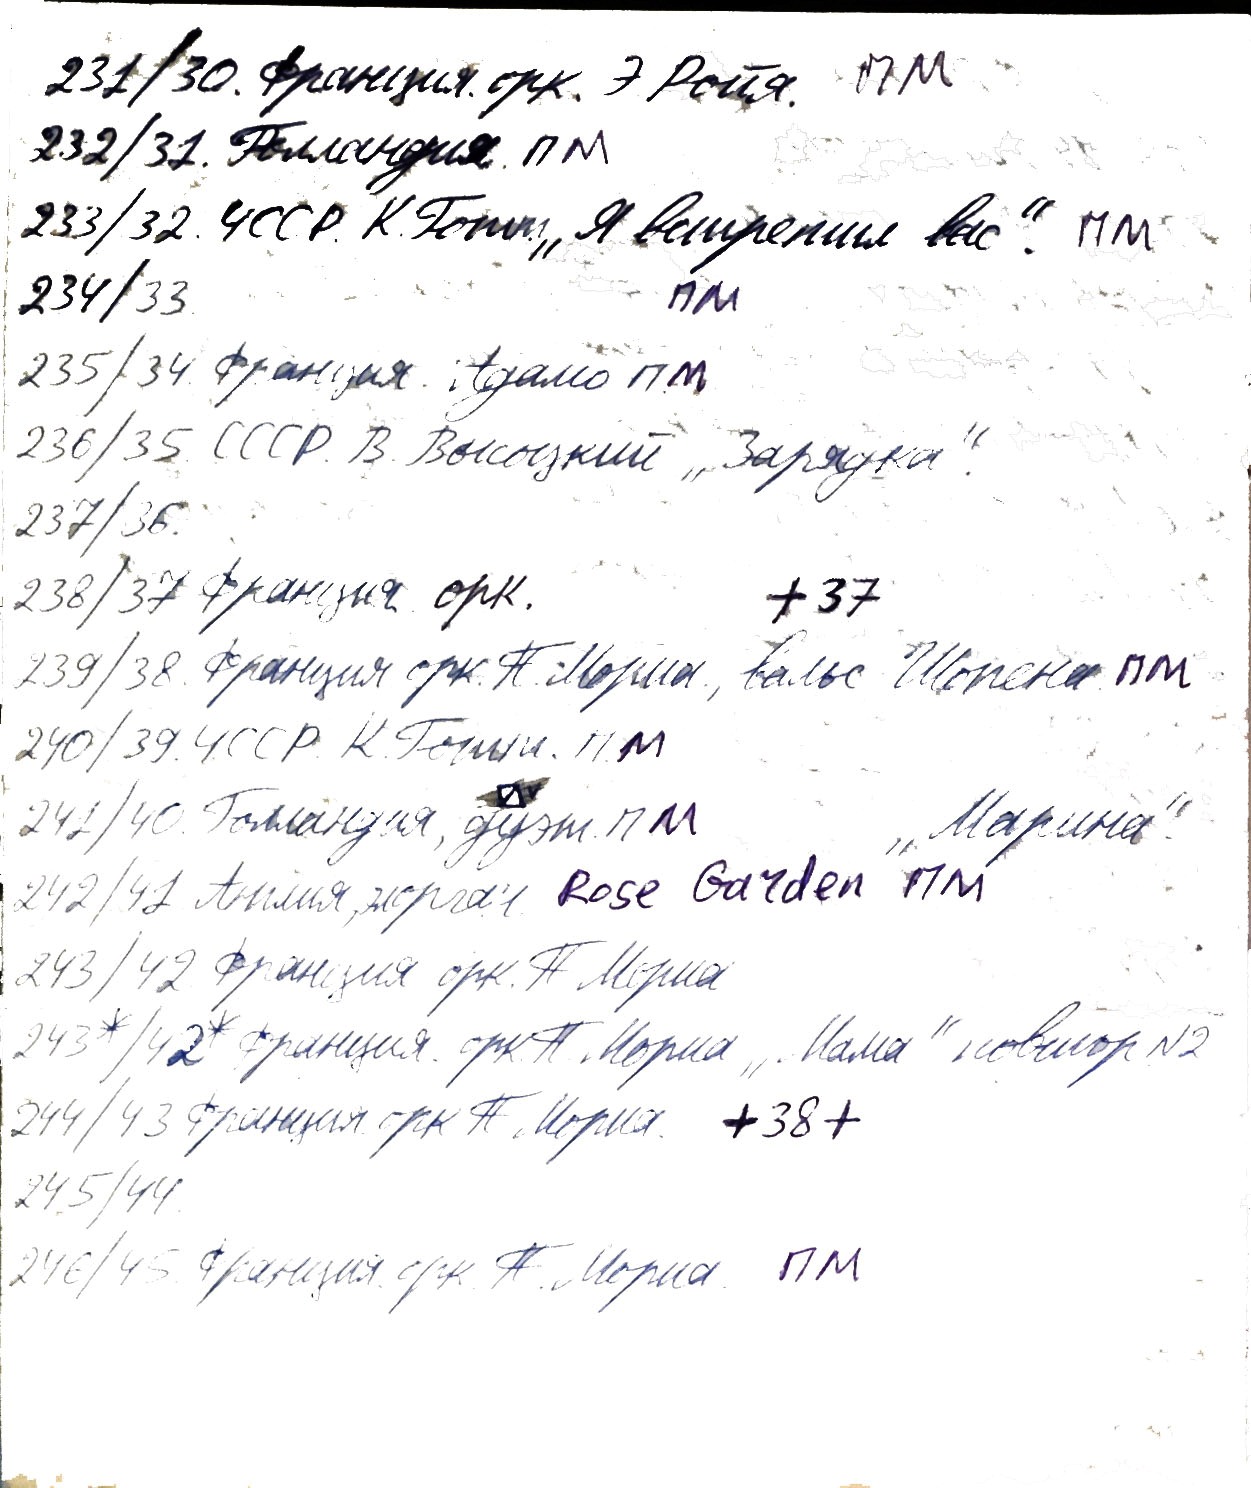 231/30. Франция. орк. Э Ротя. ПМ
232/31. Голландия. ПМ
233/32. ЧССР. К. Готт. „Я встретил вас“. ПМ
234/33 ПМ
235/34 Франция. Адамо ПМ
236/35 СССР. В. Высоцкий „Зарядка“.
237/36.
238/37 Франция орк. +37
239/38. Франция орк. П. Мориа, вальс Шопена ПМ
240/39. ЧССР. К. Готт. ПМ
241/40. Голландия, дуэт. ПМ „Марина“.
242/41 Англия, Rose Garden ПМ
243/42 Франция орк. П Мориа
243*/42* Франция. орк П. Мориа „Мама“ повтор N2
244/43 Франция. орк П. Мориа. +38+
245/44.
246/45 Франция. орк. П. Мориа. ПМ